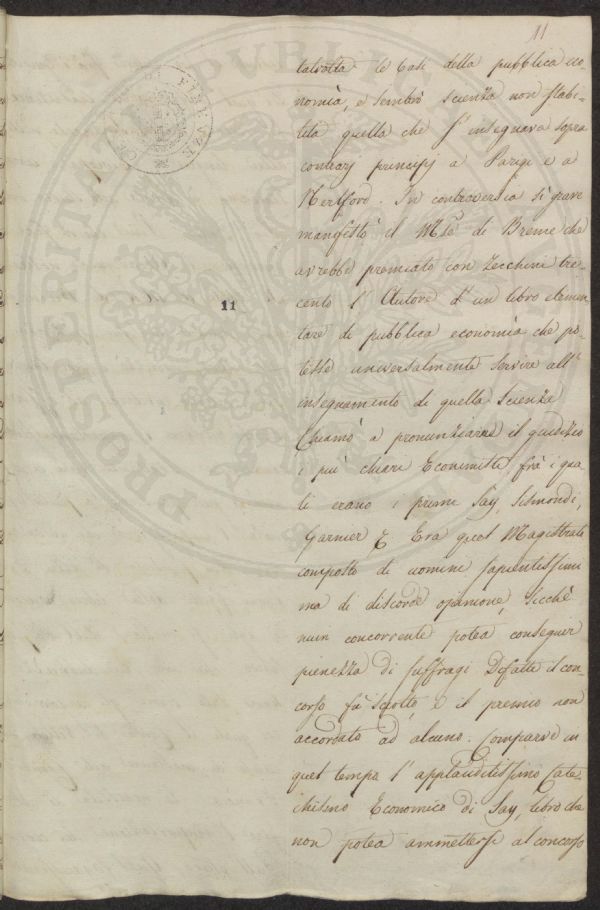 11
talvolta le basi della pubblica eco-
nomia, e sembrò scienza non stabi-
lita quella che s'insegnava sopra
contrarj principj a Parigi e a
Hertford. In controversia sì grave
manifestò il Mse di Breme che
avrebbe premiato con Zecchini tre-
cento l'Autore d'un libro elemen
tare di pubblica economia che po-
tesse universalmente servire all'
insegnamento di quella scienza
Chiamò a pronunziare il giudizio
i più chiari Economisti, frà i qua
li erano i primi Say, Sismondi,
Garnier &. Era quel Magistrato
composto di uomini sapientissimi
ma di discorde opinione, sicchè
niun concorrente potea conseguir
pienezza di suffragi Difatti il con-
corso fù sciolto, e il premio non
accordato ad alcuno. Comparve in
quel tempo l'applauditissimo Cate-
chismo Economico di Say, libro che
non potea ammettersi al concorso
11
PROSPERITÀ PUBBLICA
FIRENZE